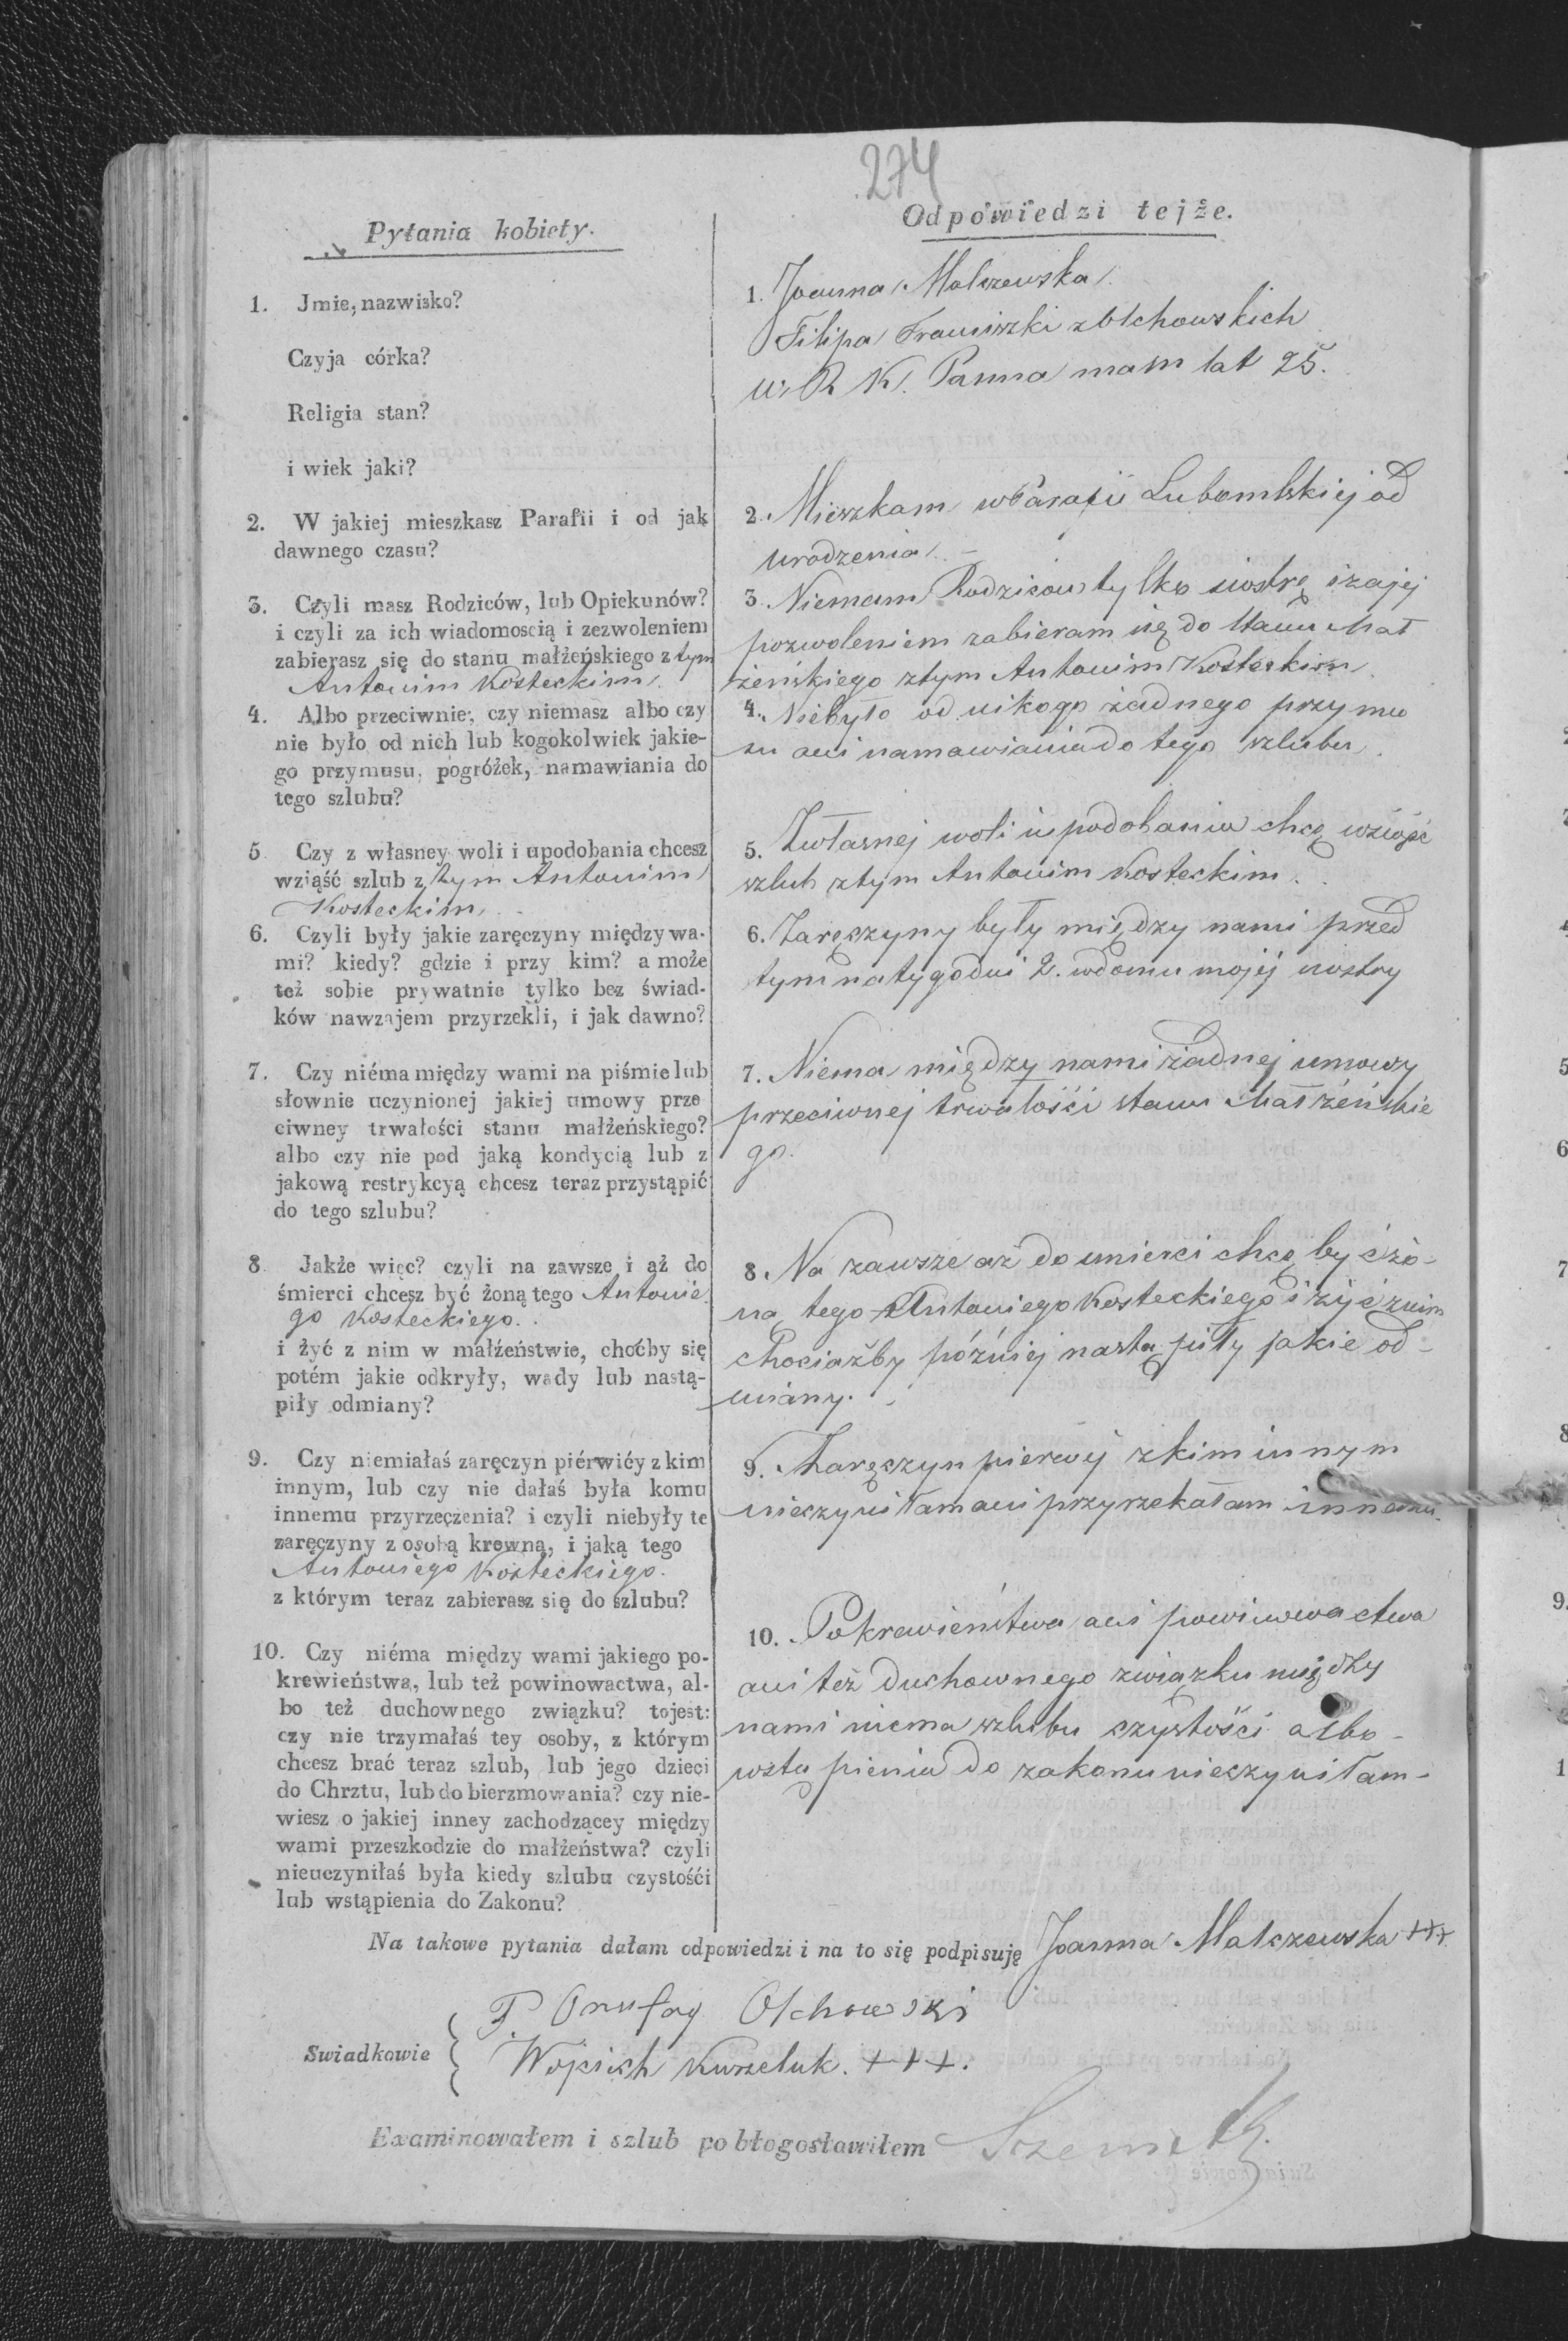 274
Pytania kobiety.
1. Jmie, nazwisko?
Czyja córka?
Religia stan?
i wiek jaki?
2. W jakiej mieszkasz Parafii i od jak
dawnego czasu?
3. Czyli masz Rodziców, lub Opiekunów?
i czyli za ich wiadomoscią i zezwoleniem
zabierasz się do stanu małżeńskiego z tym
Antonim Kosteckim
4. Albo przeciwnie; czy niemasz albo czy
nie było od nich lub kogokolwiek jakie-
go przymusu, pogróżek, namawiania do
tego szlubu?
5. Czy z własney woli i upodobania chcesz
wziąść szlub z tym Antonim
Kosteckim
6. Czyli były jakie zaręczyny między wa-
mi? kiedy? gdzie i przy kim? a może
też sobie prywatnie tylko bez świad-
ków nawzajem przyrzekli, i jak dawno?
7. Czy niéma między wami na piśmie lub
słownie uczynionej jakiej umowy prze
ciwney trwałości stanu małżeńskiego?
albo czy nie pod jaką kondycią lub z
jakową restrykcyą chcesz teraz przystąpić
do tego szlubu?
8. Jakże więc? czyli na zawsze i aż do
śmierci chcesz być żoną tego Antonie
go Kosteckiego.
i żyć z nim w małżeństwie, choćby się
potém jakie odkryły, wady lub nastą-
piły odmiany?
9. Czy niemiałaś zaręczyn piérwićy z kim
innym, lub czy nie dałaś była komu
innemu przyrzeczenia? i czyli niebyły te
zaręczyny z osobą krewną, i jaką tego
Antoniego Kosteckiego.
z którym teraz zabierasz się do szlubu?
10. Czy niéma między wami jakiego po-
krewieństwa, lub też powinowactwa, al-
bo też duchownego związku? tojest:
czy nie trzymałaś tey osoby, z którym
chcesz brać teraz szlub, lub jego dzieci
do Chrztu, lub do bierzmowania? czy nie-
wiesz o jakiej inney zachodzącey między
wami przeszkodzie do małżeństwa? czyli
nieuczyniłaś była kiedy szlubu czystośći
lub wstąpienia do Zakonu?
Odpowiedzi tejże.
1. Joanna Malczewska
Filipa Franciszki z Olchowskich
W. R K. Panna mam lat 25.
2. Mieszkam w Parafii Lubomlskiej od
urodzenia. –
3. Niemam Rodzicow tylko siostrę i zajej
pozwoleniem zabieram się do Stanu Mał
żeńskiego ztym Antonim Kosteckim
4. Niebyło od nikogo żadnego przymu
su ani namawiania do tego szlubu.
5. Zwłasnej woli i upodobania chcę wziąść
szlub ztym Antonim Kosteckim.
6. Zaręczyny były między nami przed
tym na tygodni 2. w domu mojej siostry
7. Niema między nami żadnej umowy
przeciwnej trwałości stanu Małżeńskie
go.
8. Na zawsze aż do smierci chcę być żo-
ną tego Antoniego Kosteckiego i żyć znim
chociażby później nastąpiły jakie od-
miany.
9. Zaręczyn pierwej zkim innym
nieczyniłam ani przyrzekałam innemu.
10. Pokrewieństwa ani powinowactwa
ani też duchownego związku między
nami niema szlubu czystości albo-
wstąpienia do zakonu nieczyniłam-
Na takowe pytania dałam odpowiedzi i na to się podpisuję Joanna Malczewska +++
Swiadkowie
P Onufry Olchowski
Wojcich Kurzeluk. +++.
Examinowałem i szlub pobłogosławiłem